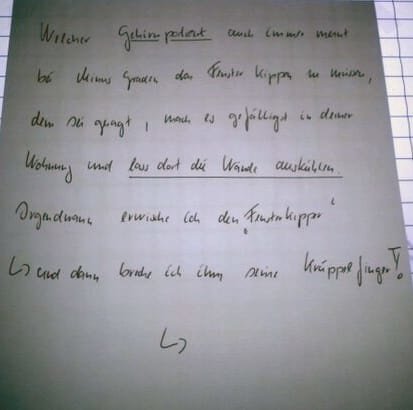 Welcher Gehirnpolizist auch immer meint
bei Minus Graden das Fenster kippen zu müssen,
dem sei gesagt, mach es gefälligst in deiner
Wohnung und lass dort die Wände auskühlen.
Irgendwann erwische ich den „Fensterkipper“
↳ und dann breche ich ihm seine Krüppelfinger!!
↳